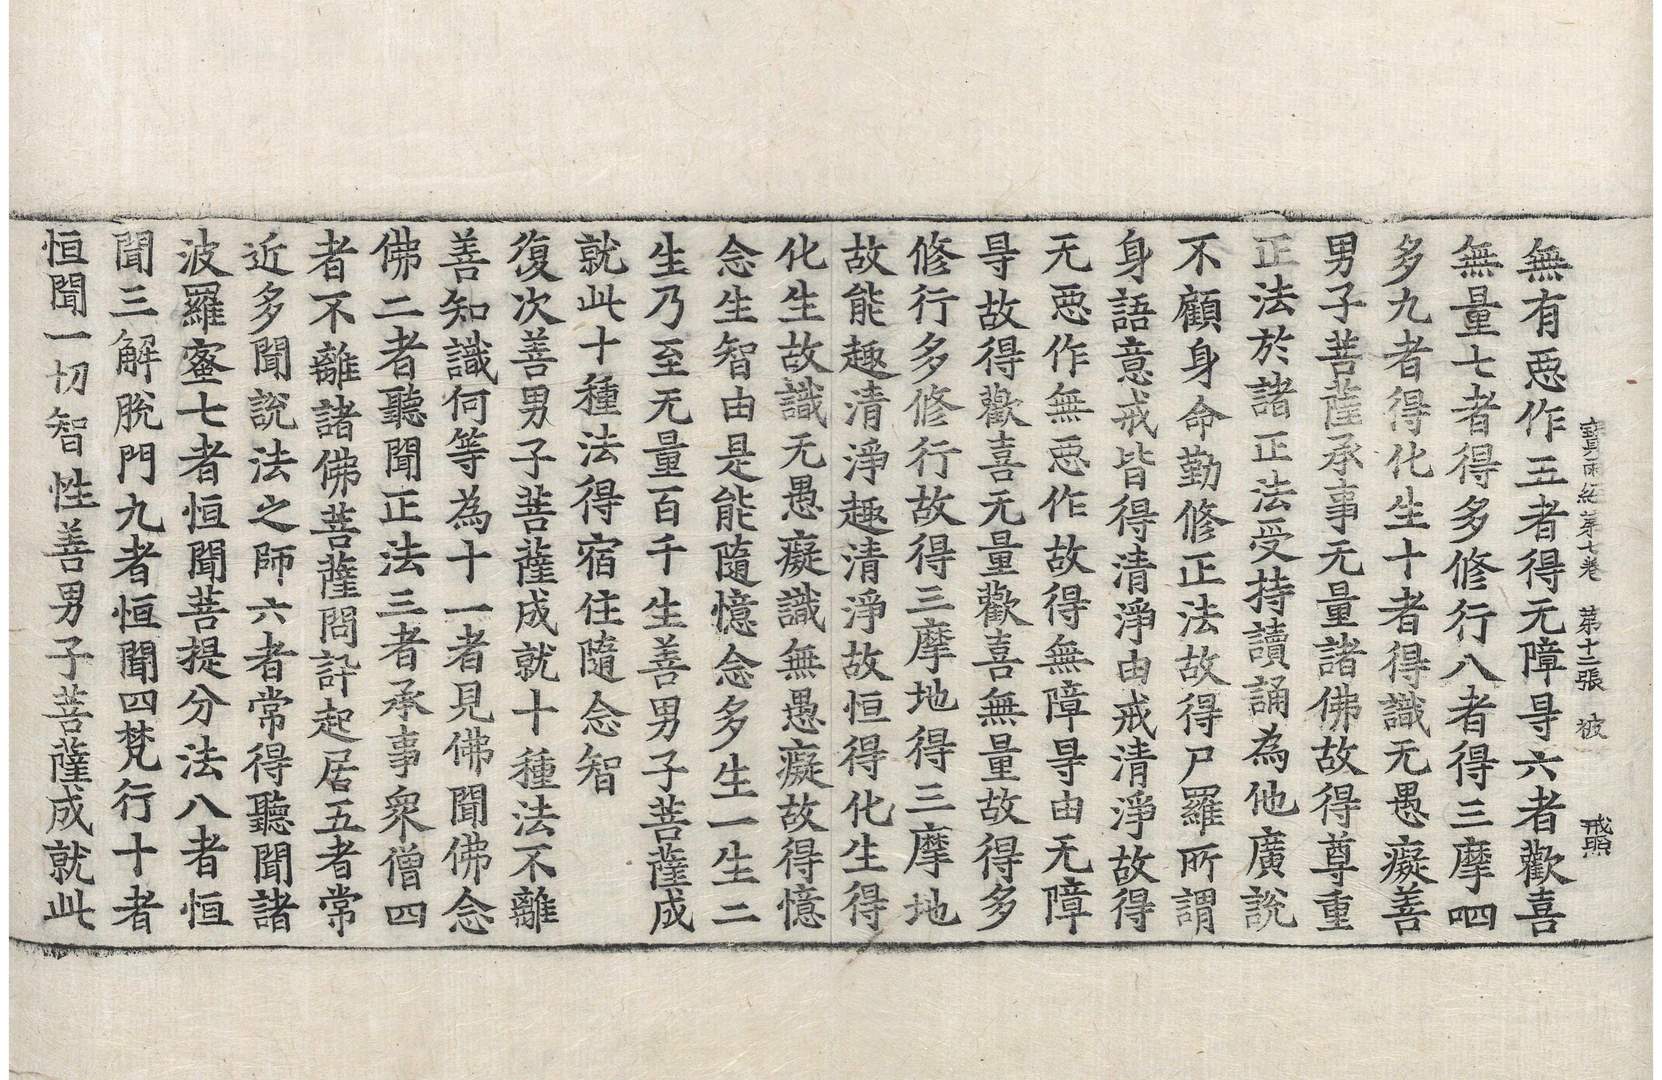 寶雨經第七卷 第十二張 被 戒照
無有恶作五者得无障㝵六者歡喜
無量七者得多修行八者得三摩呬
多九者得化生十者得識无愚癡善
男子菩薩承事无量諸佛故得尊重
正法於諸正法受持讀誦為他廣說
不顧身命勤修正法故得尸羅所謂
身語意戒皆得清淨由戒清淨故得
无恶作無恶作故得無障㝵由无障
㝵故得歡喜无量歡喜無量故得多
修行多修行故得三摩地得三摩地
故能趣清淨趣清淨故恒得化生得
化生故識无愚癡識無愚癡故得憶
念生智由是能隨憶念多生一生二
生乃至无量百千生善男子菩薩成
就此十種法得宿住隨念智
復次善男子菩薩成就十種法不離
善知識何等為十一者見佛聞佛念
佛二者聽聞正法三者承事衆僧四
者不離諸佛菩薩問訊起居五者常
近多聞說法之師六者常得聽聞諸
波羅蜜七者恒聞菩提分法八者恒
聞三解脫門九者恒聞四梵行十者
恒聞一切智性善男子菩薩成就此